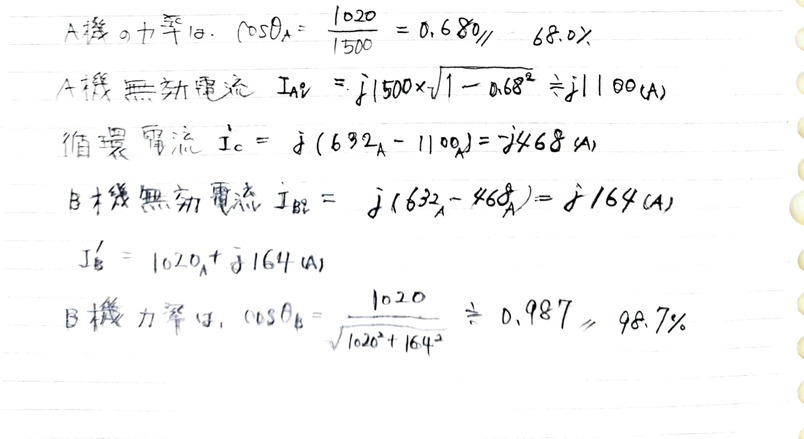 A機の力率は. cosθA = 1020/1500 = 0.680〃 68.0%
A機無効電流 IAq = j1500×√(1-0.68²) ≒ j1100(A)
循環電流 I'c = j(632A - 1100A) = -j468(A)
B機無効電流 IBq = j(632A - 468A) = j164(A)
I'B = 1020A + j164(A)
B機力率は, cosθB = 1020/√(1020²+164²) ≒ 0.987〃 98.7%